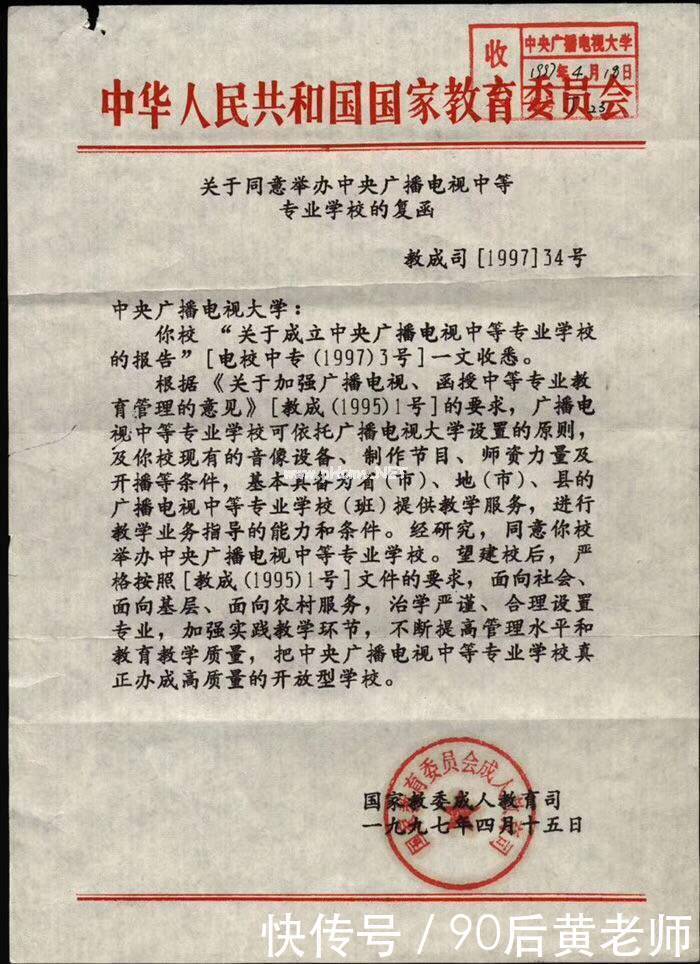 收
中央广播电视大学
1997年4月19日
中华人民共和国国家教育委员会
关于同意举办中央广播电视中等
专业学校的复函
教成司[1997]34号
中央广播电视大学：
你校“关于成立中央广播电视中等专业学校
的报告”[电校中专(1997)3号]一文收悉。
根据《关于加强广播电视、函授中等专业教
育管理的意见》[教成(1995)1号]的要求，广播电
视中等专业学校可依托广播电视大学设置的原则，
及你校现有的音像设备、制作节目、师资力量及
开播等条件，基本具备为省(市)、地(市)、县的
广播电视中等专业学校(班)提供教学服务，进行
教学业务指导的能力和条件。经研究，同意你校
举办中央广播电视中等专业学校。望建校后，严
格按照[教成(1995)1号]文件的要求，面向社会、
面向基层、面向农村服务，治学严谨、合理设置
专业，加强实践教学环节，不断提高管理水平和
教育教学质量，把中央广播电视中等专业学校真
正办成高质量的开放型学校。
国家教委成人教育司
一九九七年四月十五日
快传号/90后黄老师